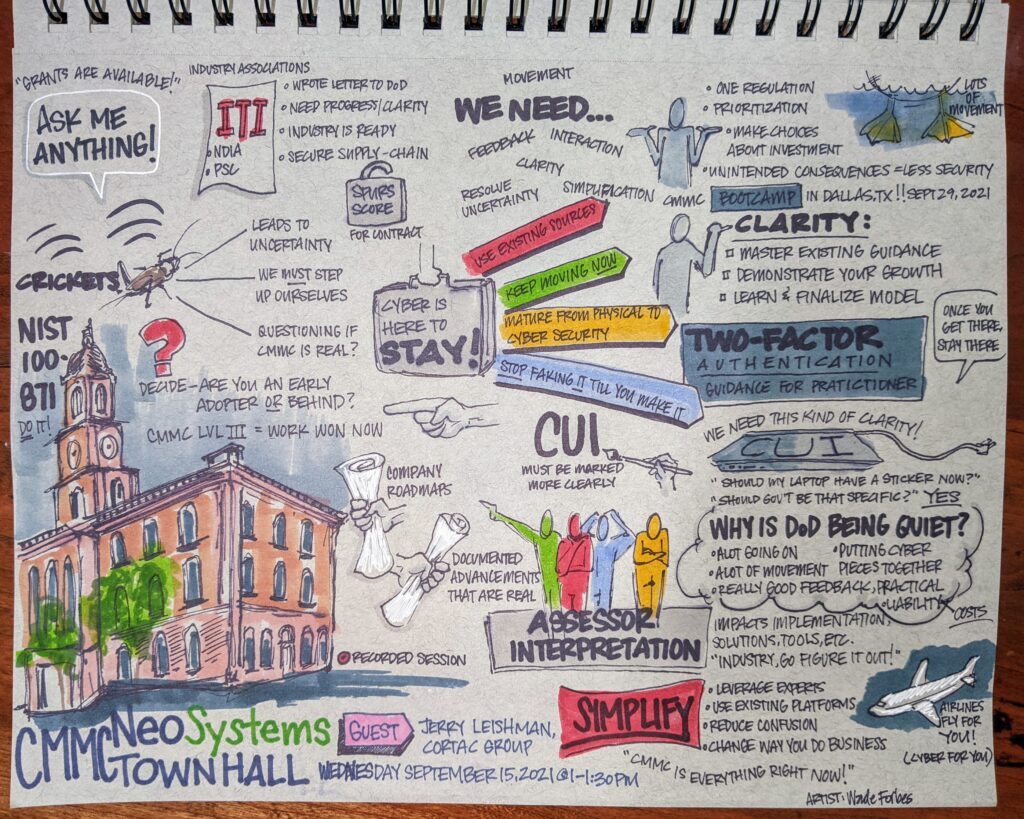 "GRANTS ARE AVAILABLE!"
ASK ME
ANYTHING!
INDUSTRY ASSOCIATIONS
ITI
• NDIA
• PSC
• WROTE LETTER TO DOD
• NEED PROGRESS/CLARITY
• INDUSTRY IS READY
• SECURE SUPPLY-CHAIN
SPURS
SCORE
FOR CONTRACT
MOVEMENT
WE NEED...
FEEDBACK
INTERACTION
CLARITY
RESOLVE
UNCERTAINTY
SIMPLIFICATION
• ONE REGULATION
• PRIORITIZATION
• MAKE CHOICES
ABOUT INVESTMENT
• UNINTENDED CONSEQUENCES = LESS SECURITY
LOTS
OF
MOVEMENT
CMMC BOOTCAMP IN DALLAS, TX!! SEPT 29, 2021
CRICKETS!
LEADS TO
UNCERTAINTY
WE MUST STEP
UP OURSELVES
QUESTIONING IF
CMMC IS REAL?
CYBER IS
HERE TO
STAY!
USE EXISTING SOURCES
KEEP MOVING NOW
MATURE FROM PHYSICAL TO
CYBER SECURITY
STOP FAKING IT TILL YOU MAKE IT
CLARITY:
MASTER EXISTING GUIDANCE
DEMONSTRATE YOUR GROWTH
LEARN & FINALIZE MODEL
TWO-FACTOR
AUTHENTICATION
GUIDANCE FOR PRATICTIONER
ONCE YOU
GET THERE,
STAY THERE
NIST
100-
871
DO IT!
?
DECIDE-ARE YOU AN EARLY
ADOPTER OR BEHIND?
CMMC LVL III = WORK WON NOW
COMPANY
ROADMAPS
DOCUMENTED
ADVANCEMENTS
THAT ARE REAL
CUI
MUST BE MARKED
MORE CLEARLY
WE NEED THIS KIND OF CLARITY!
CUI
"SHOULD MY LAPTOP HAVE A STICKER NOW?"
"SHOULD GOV'T BE THAT SPECIFIC?" YES
WHY IS DoD BEING QUIET?
• ALOT GOING ON
• ALOT OF MOVEMENT
• REALLY GOOD FEEDBACK, PRACTICAL
• PUTTING CYBER
PIECES TOGETHER
• LIABILITY
COSTS
IMPACTS IMPLEMENTATION,
SOLUTIONS, TOOLS, ETC.
"INDUSTRY, GO FIGURE IT OUT!"
ASSESSOR
INTERPRETATION
RECORDED SESSION
SIMPLIFY
• LEVERAGE EXPERTS
• USE EXISTING PLATFORMS
• REDUCE CONFUSION
• CHANGE WAY YOU DO BUSINESS
"CMMC IS EVERYTHING RIGHT NOW!"
AIRLINES
FLY FOR
YOU!
(CYBER FOR YOU)
NeoSystems
CMMC TOWN HALL
GUEST
JERRY LEISHMAN,
CORTAC GROUP
WEDNESDAY SEPTEMBER 15, 2021 @ 1-1:30 PM
ARTIST: Wade Forbes